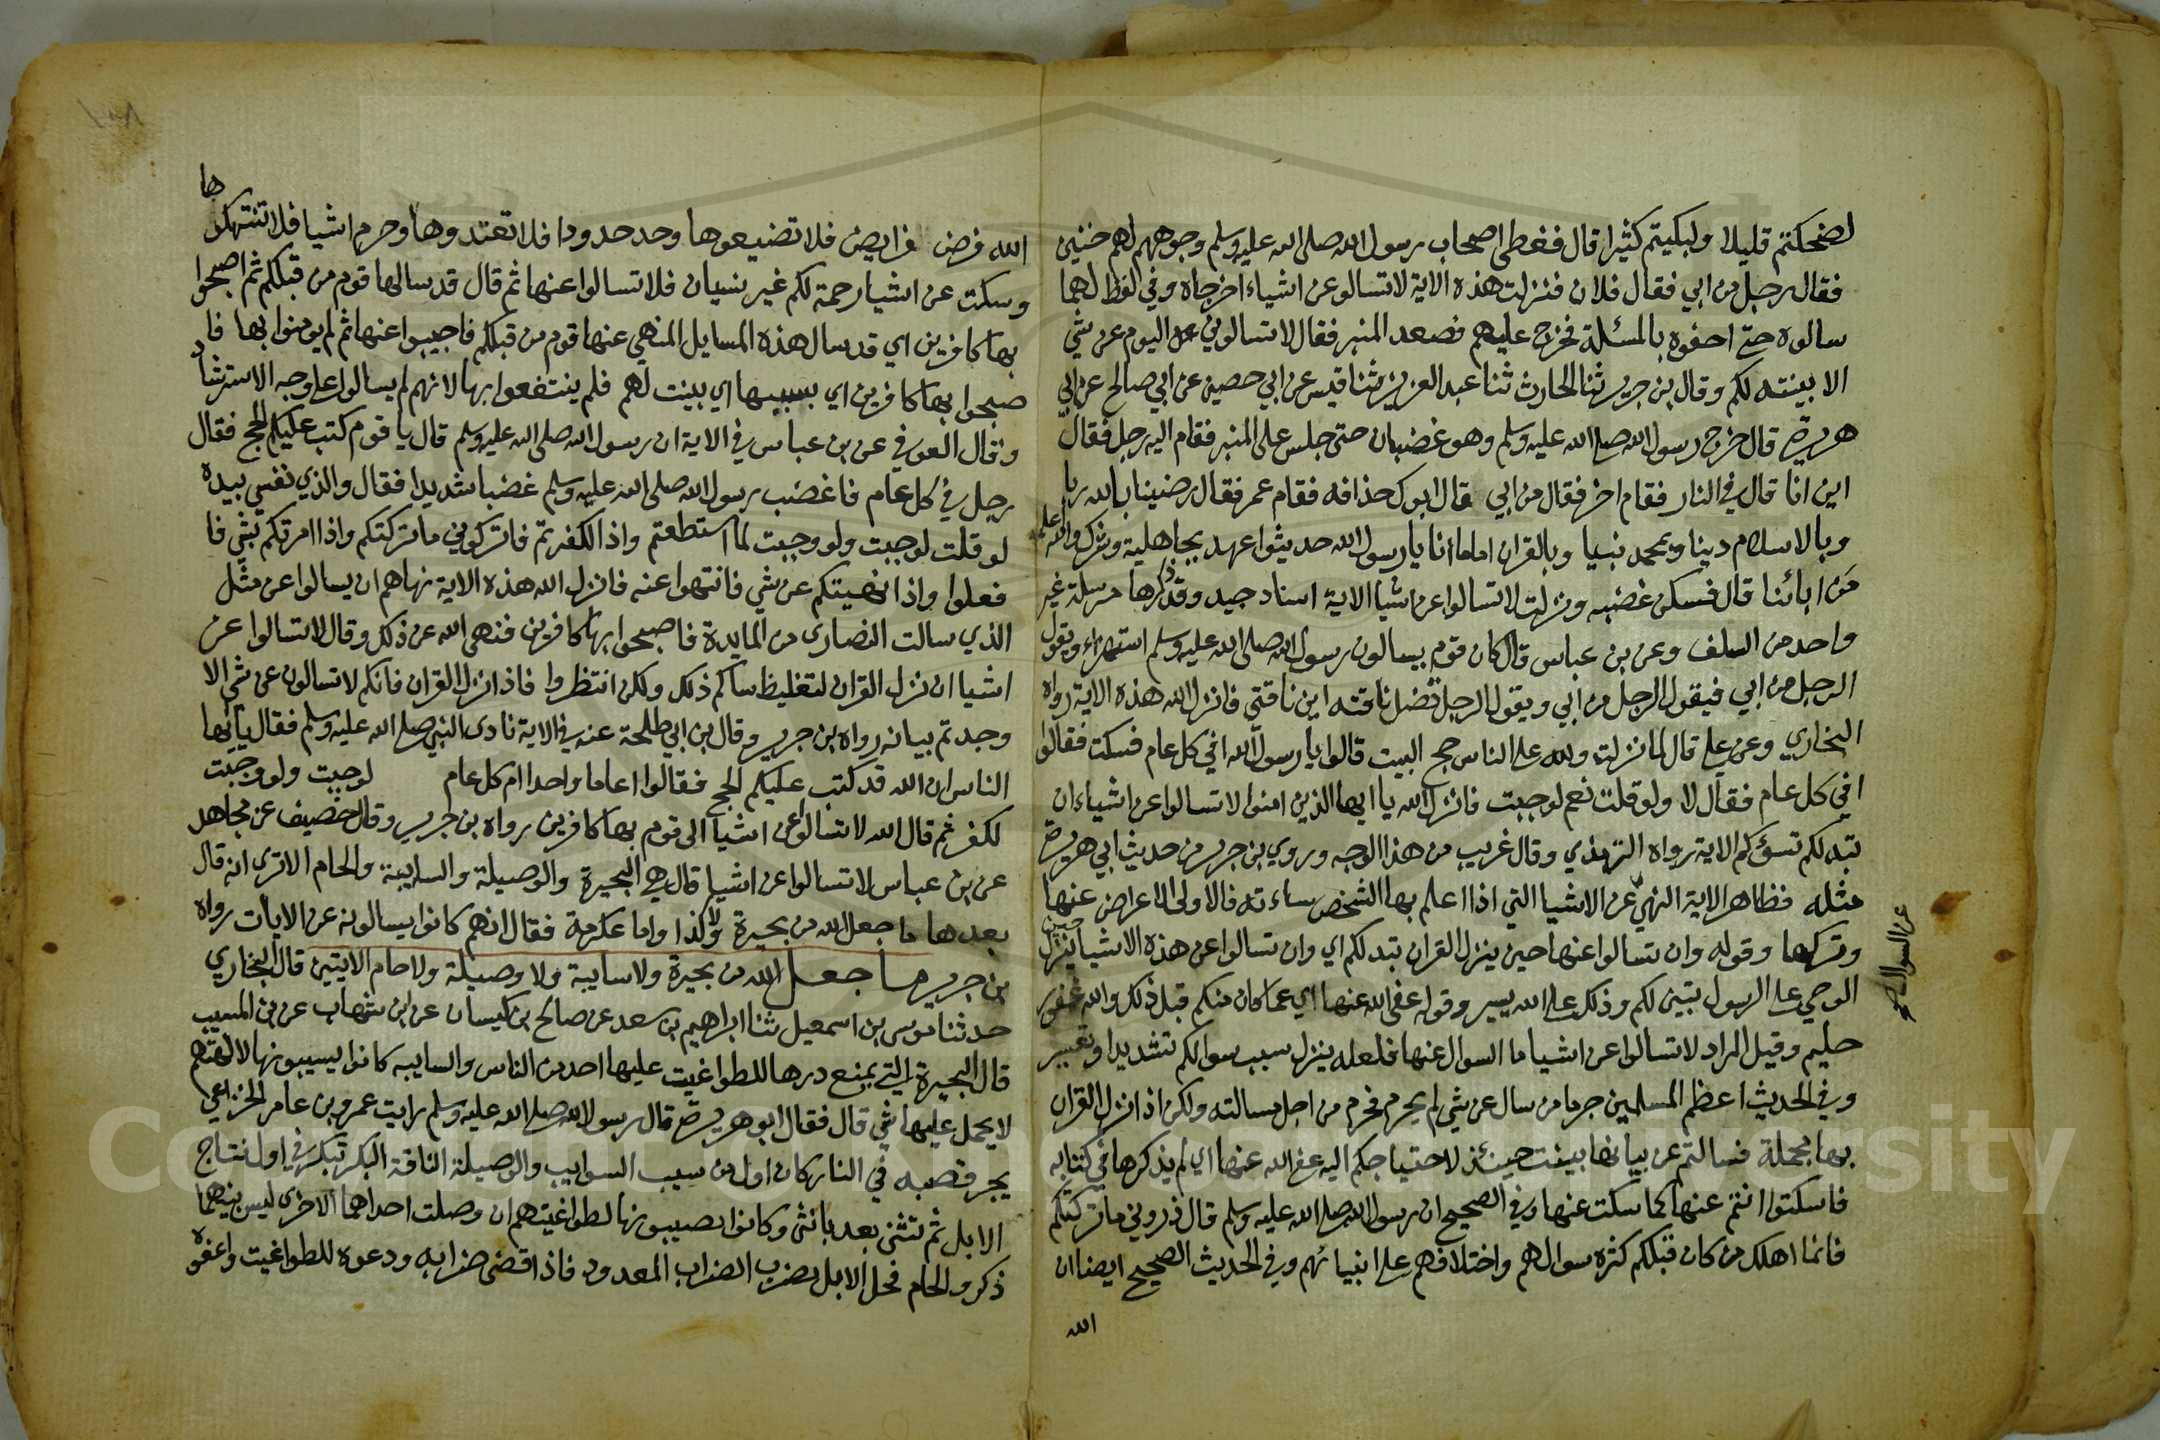 لضحكتم قليلا ولبكيتم كثيرا قال فغطى اصحاب رسول الله صلى الله عليه وسلم وجوههم لهم خنين
فقال رجل من ابي فقال فلان فنزلت هذه الاية لا تسالوا عن اشياء اخرجاه وفي لفظ لهما
سالوه حتى احفوه بالمسئلة فخرج عليهم فصعد المنبر فقال لا تسالوني اليوم عن شي
الا بينته لكم وقال بن جرير ثنا الحارث ثنا عبد العزيز ثنا قيس عن ابي حصين عن ابي صالح عن ابي
هريرة قال خرج رسول الله صلى الله عليه وسلم وهو غضبان حتى جلس على المنبر فقام اليه رجل فقال
اين انا قال في النار فقام اخر فقال من ابي فقال ابوك حذافه فقام عمر فقال رضينا بالله ربا
وبالاسلام دينا وبمحمد نبيا وبالقران اماما انا يا رسول الله حديثوا عهد بجاهلية وشرك والله اعلم
من ابائنا قال فسكن غضبه ونزلت لا تسالوا عن اشيا الاية اسناد جيد وقد ذكرها مرسلة غير
واحد من السلف وعن بن عباس قال كان قوم يسالون رسول الله صلى الله عليه وسلم استهزاء ويقول
الرجل من ابي فيقول الرجل من ابي ويقول الرجل تضل ناقته اين ناقتي فانزل الله هذه الاية رواه
البخاري وعن علي قال لما نزلت ولله على الناس حج البيت قالوا يا رسول الله افي كل عام فسكت فقالوا
افي كل عام فقال لا ولو قلت نعم لوجبت فانزل الله يا ايها الذين امنوا لا تسالوا عن اشياء ان
تبد لكم تسؤكم الاية رواه الترمذي وقال غريب من هذا الوجه وروي بن جرير من حديث ابي هريرة
مثله فظاهر الاية النهي عن الاشيا التي اذا اعلم بها الشخص ساءته فالاولى الاعراض عنها
وتركها وقوله وان تسالوا عنها حين ينزل القران تبد لكم اي وان تسالوا عن هذه الاشيا حين ينزل
الوحي على الرسول تبين لكم وذلك على الله يسير وقوله عفى الله عنها اي عما كان منكم قبل ذلك والله غفور
حليم وقيل المراد لا تسالوا عن اشيا ما السوال عنها فلعله ينزل سبب سوالكم تشديدا وتعسير
وفي الحديث اعظم المسلمين جرما من سال عن شي لم يحرم فحرم من اجل مسالته ولكن اذا نزل القران
بها مجملة فسالتم عن بيانها بينت حينئذ لاحتياجكم اليه عفا الله عنها اي لم يذكرها في كتابه
فاسكتوا انتم عنها كما سكت عنها وفي الصحيح ان رسول الله صلى الله عليه وسلم قال ذروني ما تركتكم
فانما اهلك من كان قبلكم كثره سوالهم واختلافهم على انبيائهم وفي الحديث الصحيح ايضا ان
الله
عن السوال
الله فرض فرايض فلا تضيعوها وحد حدودا فلا تعتدوها وحرم اشيا فلا تنتهكوها
وسكت عن اشيا رحمة لكم غير نسيان فلا تسالوا عنها ثم قال قد سالها قوم من قبلكم ثم اصبحوا
بها كافرين اي قد سال هذه المسايل المنهي عنها قوم من قبلكم فاجيبوا عنها ثم لم يومنوا بها فا
صبحوا بها كافرين اي بسببها اي بينت لهم فلم ينتفعوا بها لانهم لم يسالوا على وجه الاسترشاد
وقال العوفي عن بن عباس في الاية ان رسول الله صلى الله عليه وسلم قال يا قوم كتب عليكم الحج فقال
رجل في كل عام فاغضب رسول الله صلى الله عليه وسلم غضبا شديدا فقال والذي نفسي بيده
لو قلت لوجبت ولو وجبت لما استطعتم واذا لكفرتم فاتركوني ما تركتكم واذا امرتكم بشي فا
فعلوا واذا نهيتكم عن شي فانتهوا عنه فانزل الله هذه الاية نهاهم ان يسالوا عن مثل
الذي سالت النصارى من المايدة فاصبحوا بها كافرين فنهى الله عن ذلك وقال لا تسالوا عن
اشيا ان نزل القران لتغليظ ساكم ذلك ولكن انتظروا فاذا نزل القران فانكم لا تسالون عن شي الا
وجدتم بيانه رواه بن جرير وقال بن ابي طلحة عنه في الاية نادى النبي صلى الله عليه وسلم فقال يا ايها
الناس ان الله قد كتب عليكم الحج فقالوا اعاما واحدا ام كل عام لوجبت ولو وجبت
لكفر ثم قال الله لا تسالوا عن اشيا الى قوم بها كافرين رواه بن جرير وقال خصيف عن مجاهد
عن بن عباس لا تسالوا عن اشيا قال هي البحيرة والوصيلة والسايبة والحام الا ترى انه قال
بعدها ما جعل الله من بحيرة ولا كذا واما عكرمة فقال انهم كانوا يسالونه عن الايات رواه
بن جرير ما جعل الله من بحيرة ولا سايبة ولا وصيلة ولا حام الايتين قال البخاري
حدثنا موسى بن اسمعيل ثنا ابراهيم بن سعد عن صالح بن كيسان عن بن شهاب عن بن المسيب
قال البحيرة التي يمنع درها للطواغيت عليها احد من الناس والسايبه كانوا يسيبونها لالهتهم
لا يحمل عليها شي قال فقال ابو هريرة قال رسول الله صلى الله عليه وسلم رايت عمرو بن عامر الخزاعي
يجر قصبه في النار كان اول من سيب السوايب والوصيلة الناقة البكر تبكر في اول نتاج
الابل ثم تثني بعد بانثى وكانوا يسيبونها لطواغيتهم ان وصلت احداهما الاخرى ليس بينهما
ذكر والحام فحل الابل يضرب الضراب المعدود فاذا قضى ضرابه ودعوه للطواغيت واعفوه